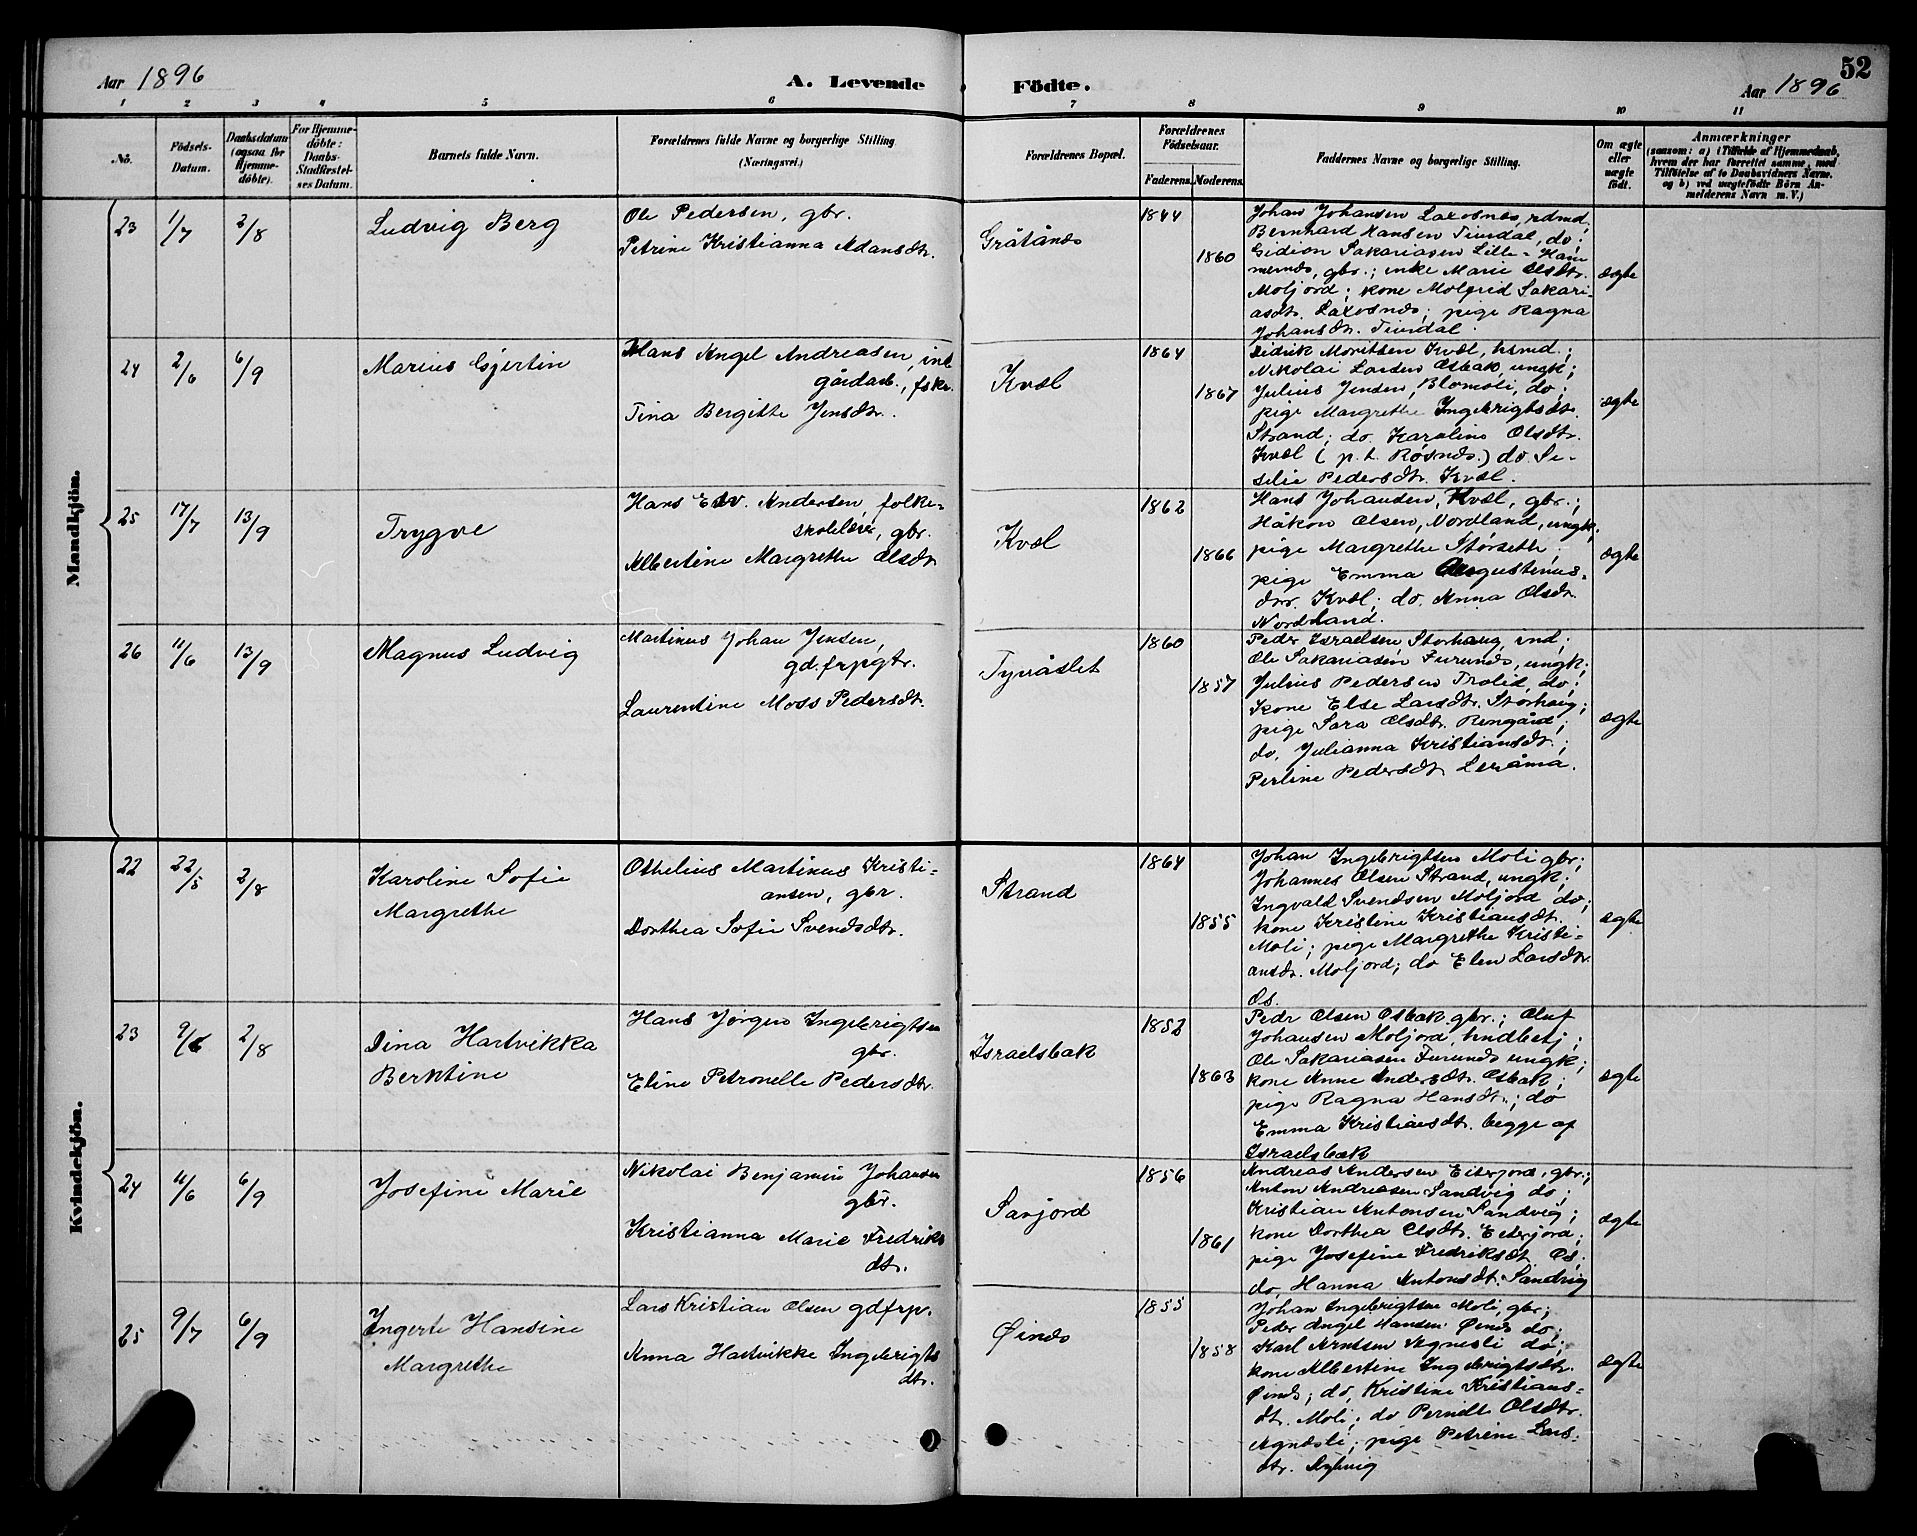 52
Aar 1896
A. Levende
Födte.
Aar 1896
1 2 3 4 5 6 7 8 9 10 11
No.
Födsels-
Datum.
Daabsdatum
(ogsaa for
Hjemme-
döbte).
For Hjemme-
döbte:
Daabs-
Stadfæstel-
ses Datum.
Barnets fulde Navn.
Forældrenes fulde Navne og borgerlige Stilling
(Næringsvei.)
Forældrenes Bopæl.
Forældrenes
Födselsaar.
Faderens. Moderens.
Faddernes Navne og borgerlige Stilling.
Om ægte
eller
uægte
födt.
Anmærkninger
(saasom: a) i Tilfælde af Hjemmedaab,
hvem der har forrettet samme, med
Tilföielse af to Daabsvidners Navne.
og b) ved uægtefödte Börn An-
melderens Navn m.V.)
Mandkjön.
23 1/7 2/8
Ludvig Berg
Ole Pedersen, gbr.
Petrine Kristianna Adamsdtr.
Gråtånes
1844
1860
Johan Johansen Laxosnes, rdmd,
Bernhard Hansen Tinrdal, do;
Gidion Sakariasen Lille-Ham
mernes, gbr.; enke Marie Olsdtr.
Moljord; kone Molfrid Sakari-
asdtr. Laxosnes; pige Ragna
Johansdtr. Tinrdal.
ægte
24 2/6 6/9
Marius Gjertin
Hans Angel Andreasen, ind
gårdarb., fskr.
Tina Bergitte Jensdtr.
Kvæl
1864
1867
Didrik Moritsen Kvæl, hsmd.;
Nikolai Larsen Osbak, ungk;
Julius Jensen, Blomoli, do;
pige Margrethe Ingebrigtsdtr.
Strand; do. Karoline Olsdtr.
Kvæl (p.t. Røsnes.) do. Se-
silie Pedersdtr. Kvæl.
ægte
25 17/7 13/9
Trygve
Hans Edv. Andersen, folke-
skolelærer, gbr.
Albertine Margrethe Olsdtr
Kvæl
1862
1866
Hans Johansen, Kvæl, gbr.;
Håkon Olsen, Nordland, ungk;
pige Margrethe Størseth;
pige Emma Augustinus-
dtr. Kvæl; do. Anna Olsdtr.
Nordland.
ægte
26 11/6 13/9
Magnus Ludvig
Martinus Johan Jensen,
gd.frpgtr.
Laurentine Moss Pedersdtr.
Tyvåslet
1860
1857
Peder Israelsen, Storhaug, ind;
Ole Sakariasen Furunes, ungk;
Julius Pedersen Trolid, do;
Kone Else Larsdtr. Storhaug;
pige Sara Olsdtr. Rengård;
do, Julianna Kristiansdtr.;
Perline Pedersdtr Leråma.
ægte
Kvindekjön.
22 22/5 2/8
Karoline Sofie
Margrethe
Othelius Martinus Kristi-
ansen, gbr.
Dorthea Sofie Svendsdtr.
Strand
1864
1855
Johan Ingebrigtsen Moli gbr;
Johannes Olsen Strand, ungk;
Ingvald Svendsen Moljord do;
kone Kristine Kristiansdtr.
Moli; pige Margrethe Kristi-
ansdr. Moljord; do Elen Larsdtr.
Øs.
ægte
23 9/6 2/8
Dina Hartvikka
Berntine
Hans Jørgen Ingebrigtsen
gbr.
Eline Petronelle Pedersdtr.
Israelsbak
1852
1863
Pedr Olsen Osbak gbr.; Oluf
Johansen Moljord, hndbetj;
Ole Sakariasen Furunes ungk;
kone Anne Andersdtr. Osbak;
pige Ragna Hansdtr.; do
Emma Kristiansdtr. begge af
Israelsbæk
ægte
24 11/6 6/9
Josefine Marie
Nikolai Benjamin Johansen
gbr.
Kristianna Marie Fredriks
dtr.
Sanjord
1856
1861
Andreas Andersen Eiterjord, gbr;
Anton Andreasen Sandvig do;
Kristian Antonsen Sandvig;
kone Dorthea Olsdtr. Eiterjord;
pige Josefine Fredriksdtr Øs.
do, Hanna Antonsdtr. Sandvig
ægte
25 9/7 6/9
Ingerte Hansine
Margrethe
Lars Kristian Olsen gdfrp.
Anna Hartvikke Ingebrigts
dtr.
Øines
1855
1858
Johan Ingebrigtsen Moli, gbr;
Peder Angel Hansen Øines do;
Karl Arntsen Agnesli do;
kone Albertine Ingebrigtsdtr.
Øines; do, Kristine Kristians-
dtr. Moli; do Pernille Olsdtr.
Agnesli; pige Petrine Lars-
dtr. Dybvig
ægte